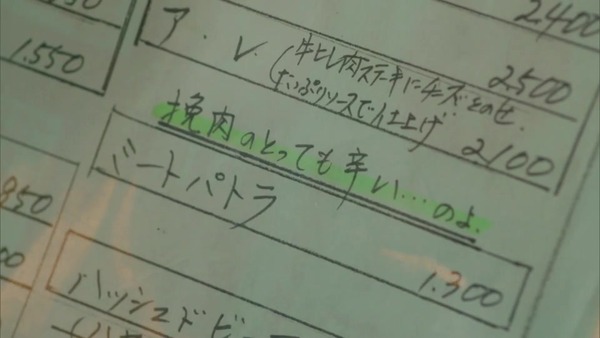 2400
1.550
2500
ア.V.(牛ヒレ肉ステーキにチーズをのせ.
たっぷりソースで仕上げ
2100
挽肉のとっても辛い…のよ.
ミートパトラ
1.300
850
ハッシュドビー